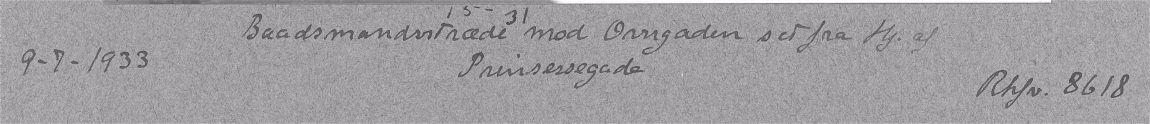 15-31
Baadsmandsstræde mod Ovrgaden set fra Hj. af
9-7-1933
Prinsessegade
Rhfv. 8618